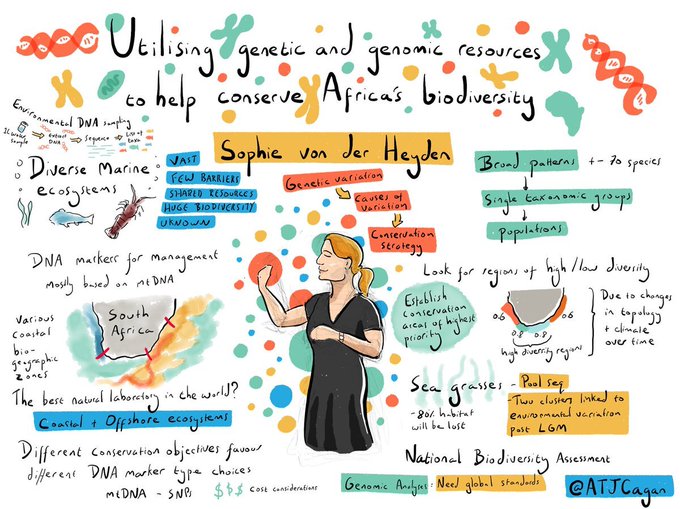 Utilising genetic and genomic resources
to help conserve Africa's biodiversity
Environmental DNA sampling
2L water sample
extract DNA
Sequence
List of taxa
Sophie von der Heyden
Diverse Marine
ecosystems
VAST
FEW BARRIERS
SHARED RESOURCES
HUGE BIODIVERSITY
UKNOWN
Genetic variation
Causes of
variation
Conservation
Strategy
Broad patterns +- 70 species
Single taxonomic groups
populations
DNA markers for management
mostly based on mtDNA
Various
coastal
bio-
geographic
zones
South
Africa
The best natural laboratory in the world?
Coastal + Offshore ecosystems
Different conservation objectives favour
different DNA marker type choices
mtDNA - SNPs
$$$ Cost considerations
Look for regions of high/low diversity
Establish
Conservation
areas of highest
priority
0.6
0.8
0.8
0.6
high diversity regions
Due to changes
in topology
+ climate
over time
Sea grasses
- 80% habitat
will be lost
- Pool seq
- Two clusters linked to
environmental variation
post LGM
National Biodiversity Assessment
Genomic Analyses: Need global standards
@ATJCagan